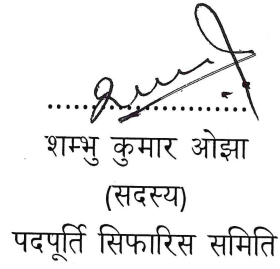 शम्भु कुमार ओझा
(सदस्य)
पदपूर्ति सिफारिस समिति